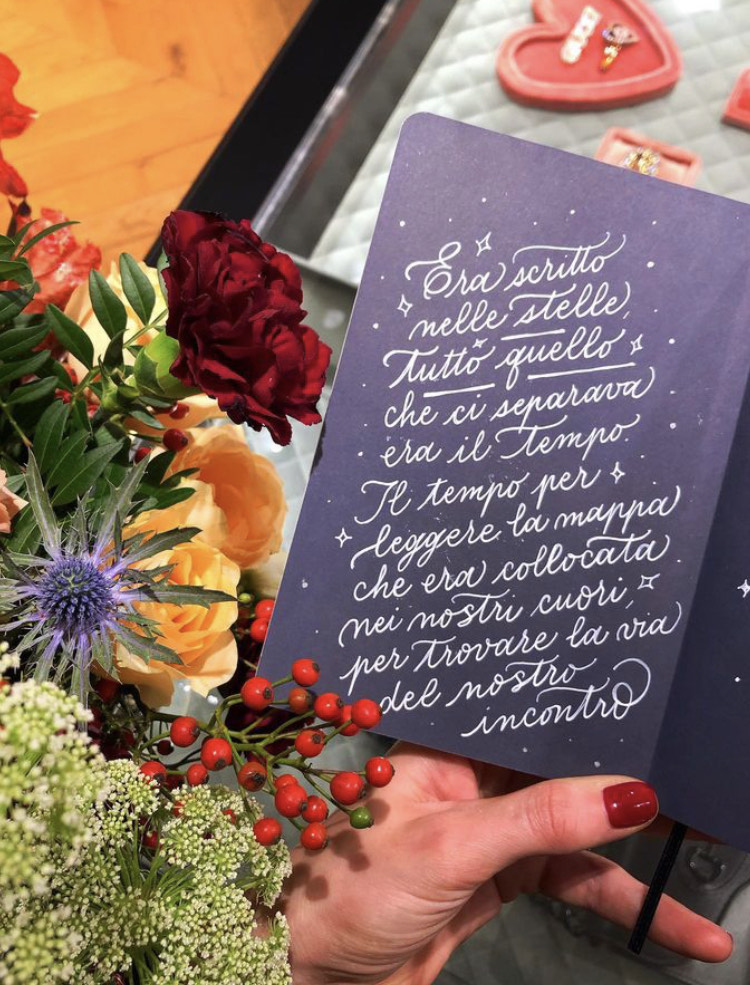 Era scritto
nelle stelle,
tutto quello
che ci separava
era il tempo.
Il tempo per
leggere la mappa
che era collocata
nei nostri cuori,
per trovare la via
del nostro
incontro